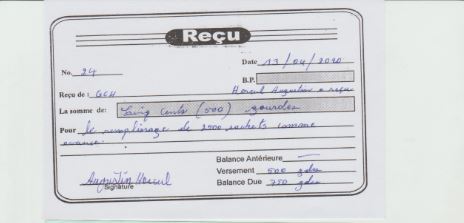 Reçu
No. 24
Date 13/04/2010
B.P.
Reçu de: GCH Horeul Augustin a reçu
La somme de: Cinq cents (500) gourdes
Pour le remplissage de 2500 sachets comme
avance.
Balance Antérieure
Versement 500 gdes
Balance Due 750 gdes
Augustin Horeul
Signature